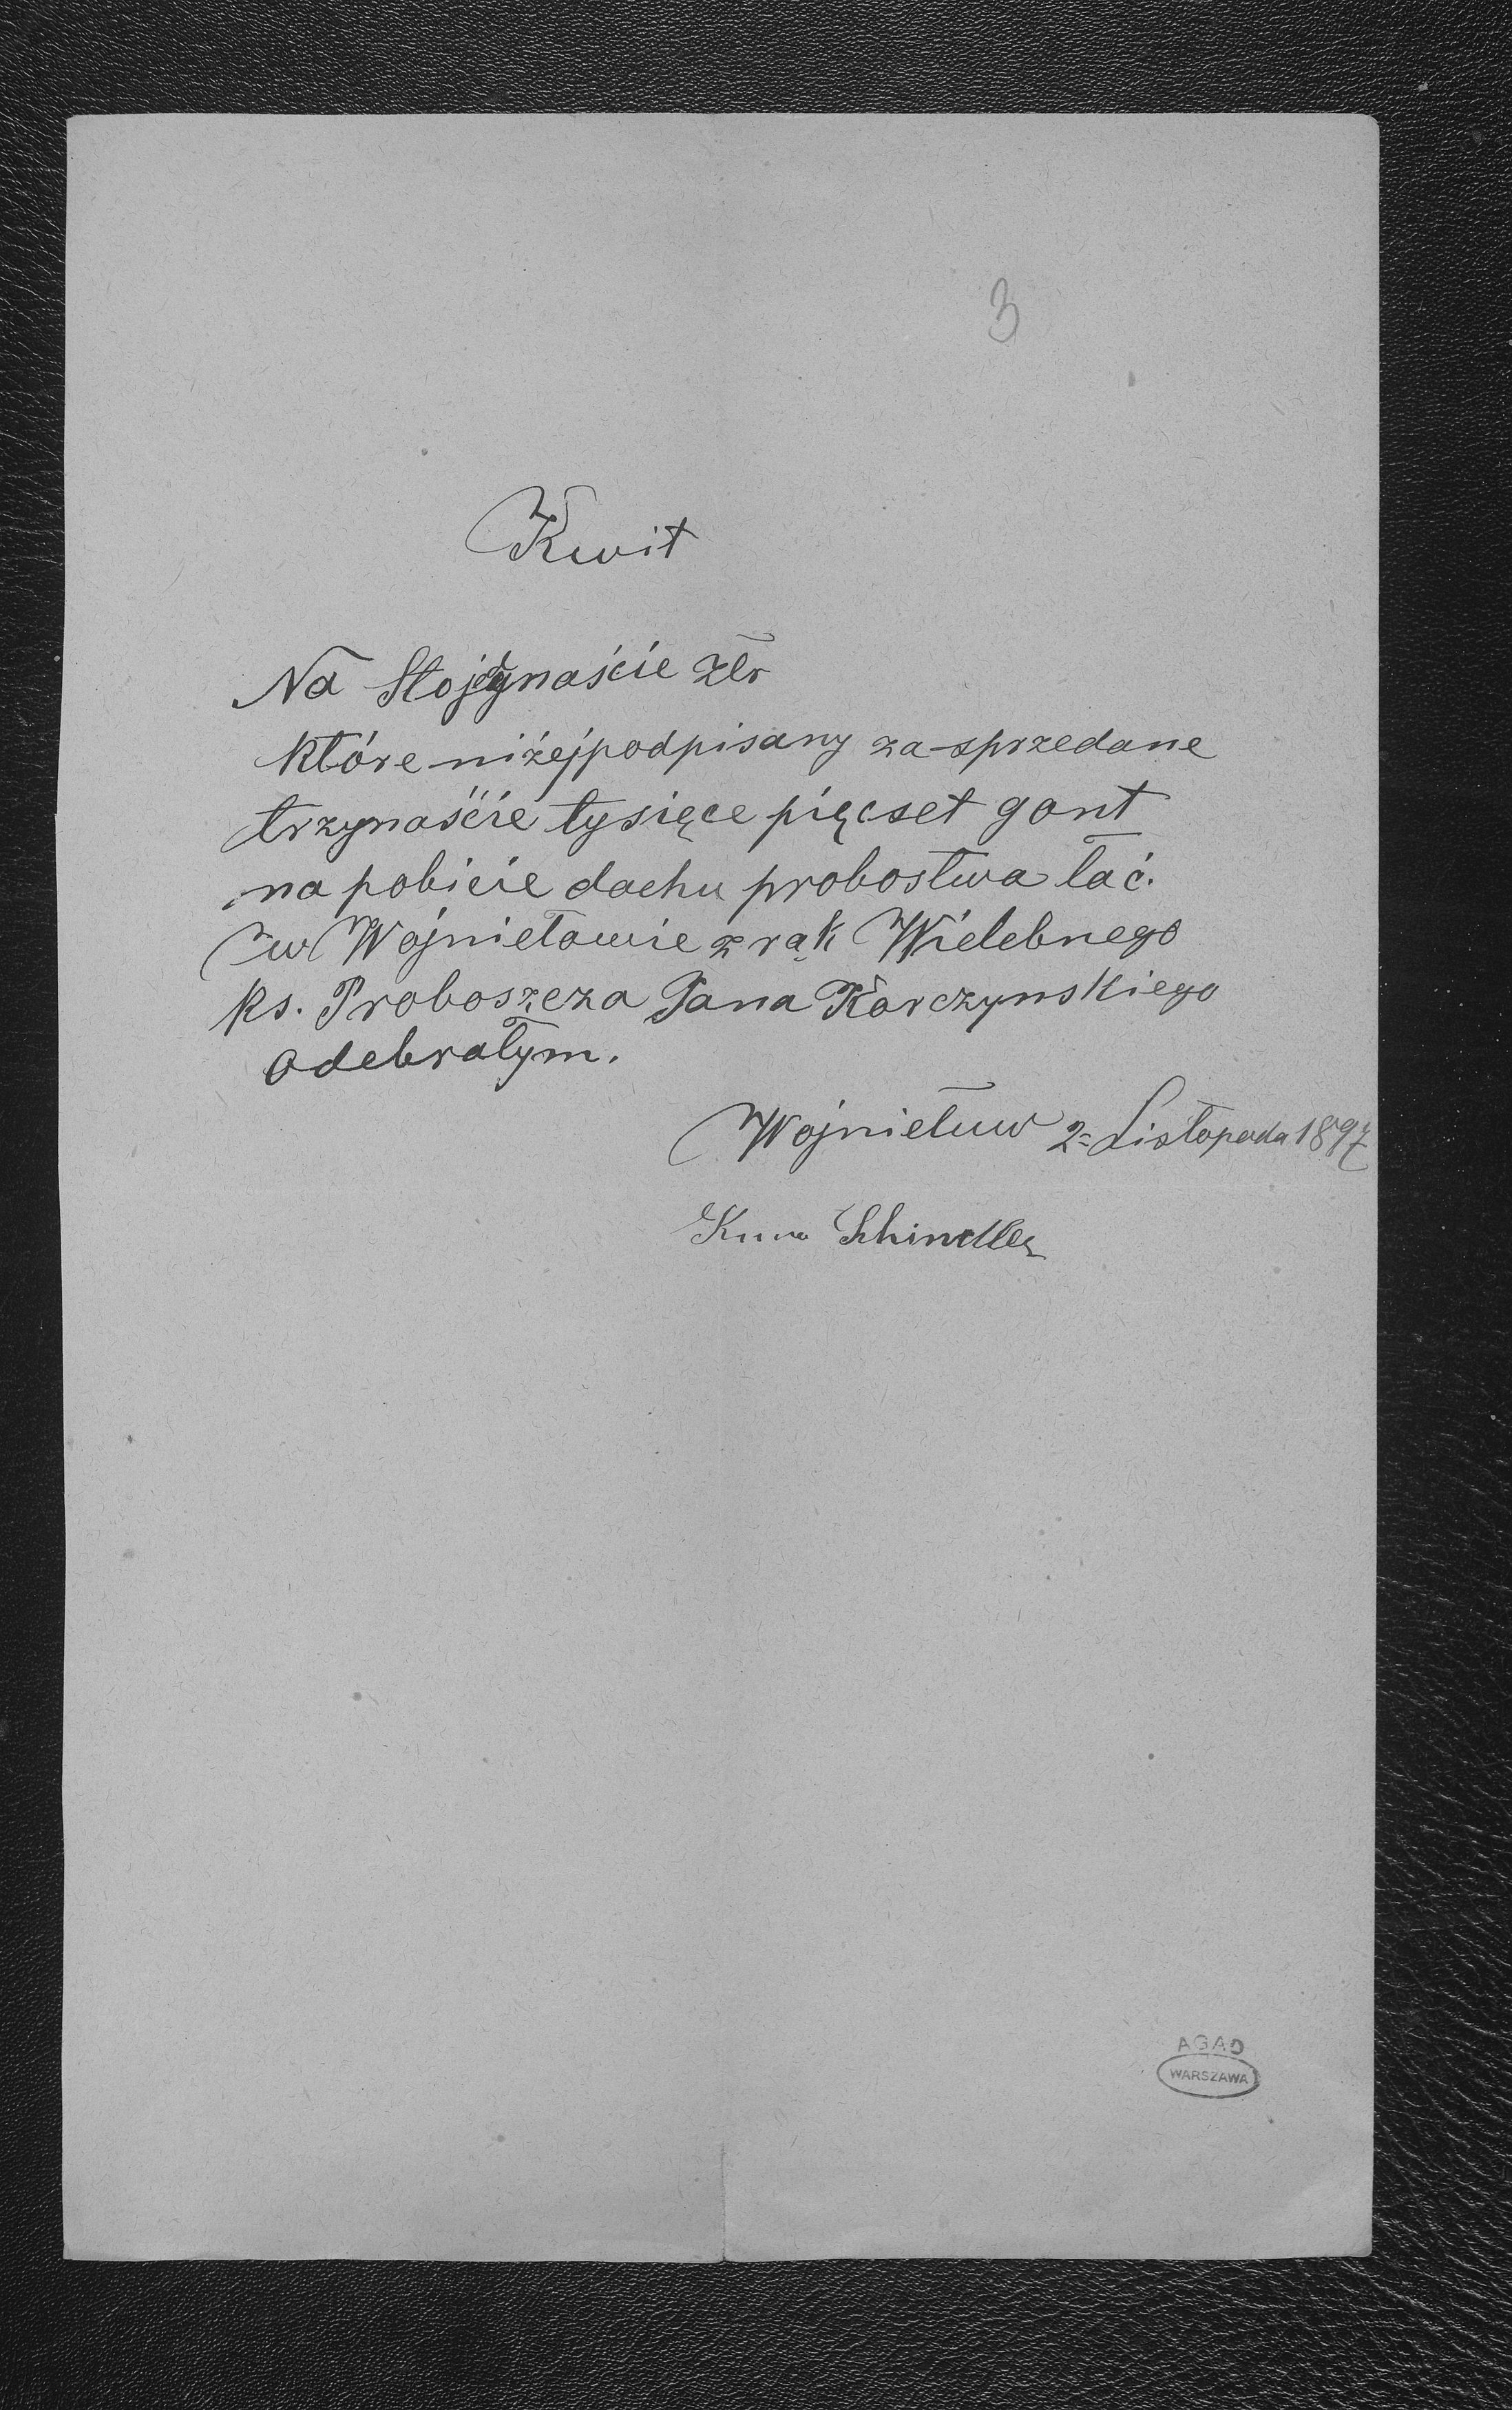 3
Kwit
Na Stojedynaście złr
które niżejpodpisany za sprzedane
trzynaście tysięce pięcset gont
na pobicie dachu probostwa łać.
w Wojniłowie z rąk Wielebnego
ks. Proboszcza Jana Karczynskiego
odebrałym.
Wojniłuw 2= Listopada 1897
Schindler
AGAD
WARSZAWA